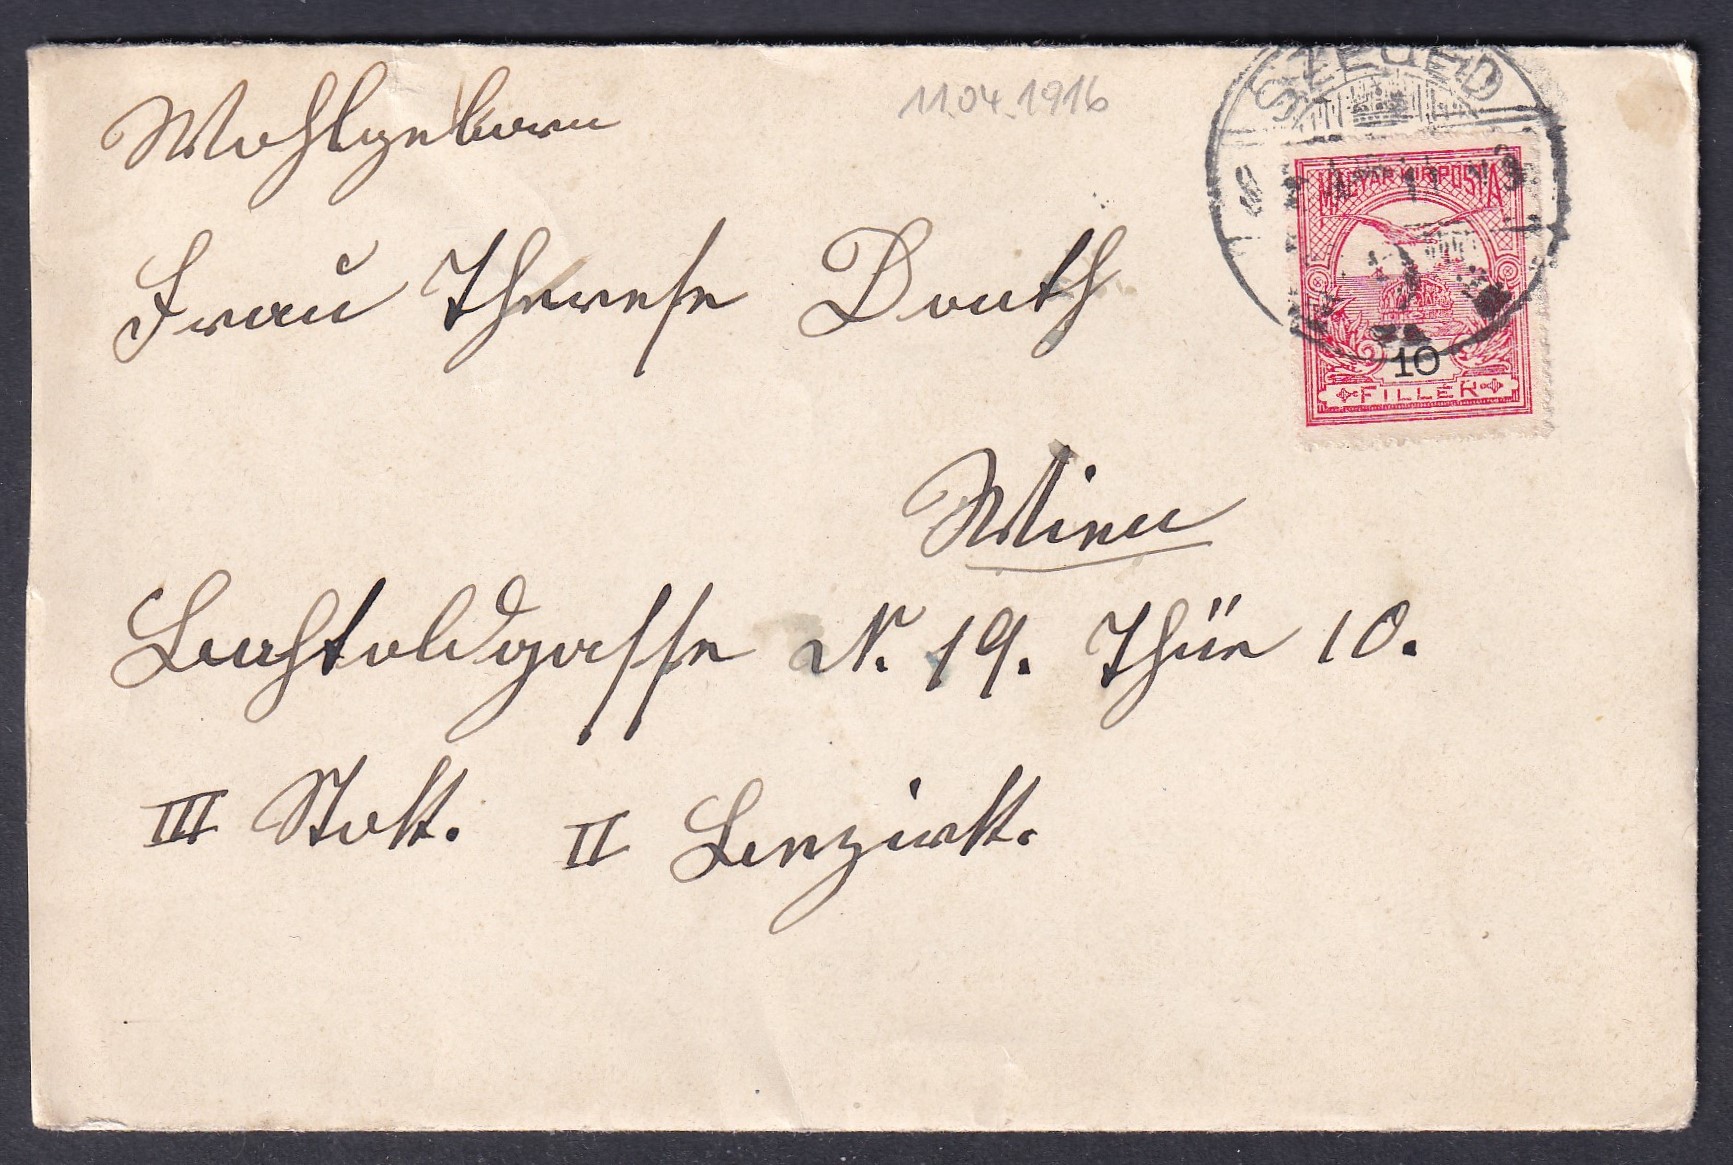 Wohlgeboren
11.04.1916
SZEGED
MAGYAR KIR. POSTA
10
FILLÉR
Frau Therese Donth
Wien
Lichtoldgasse N. 19. Thür 10.
III Stokk. II Benzirkk.